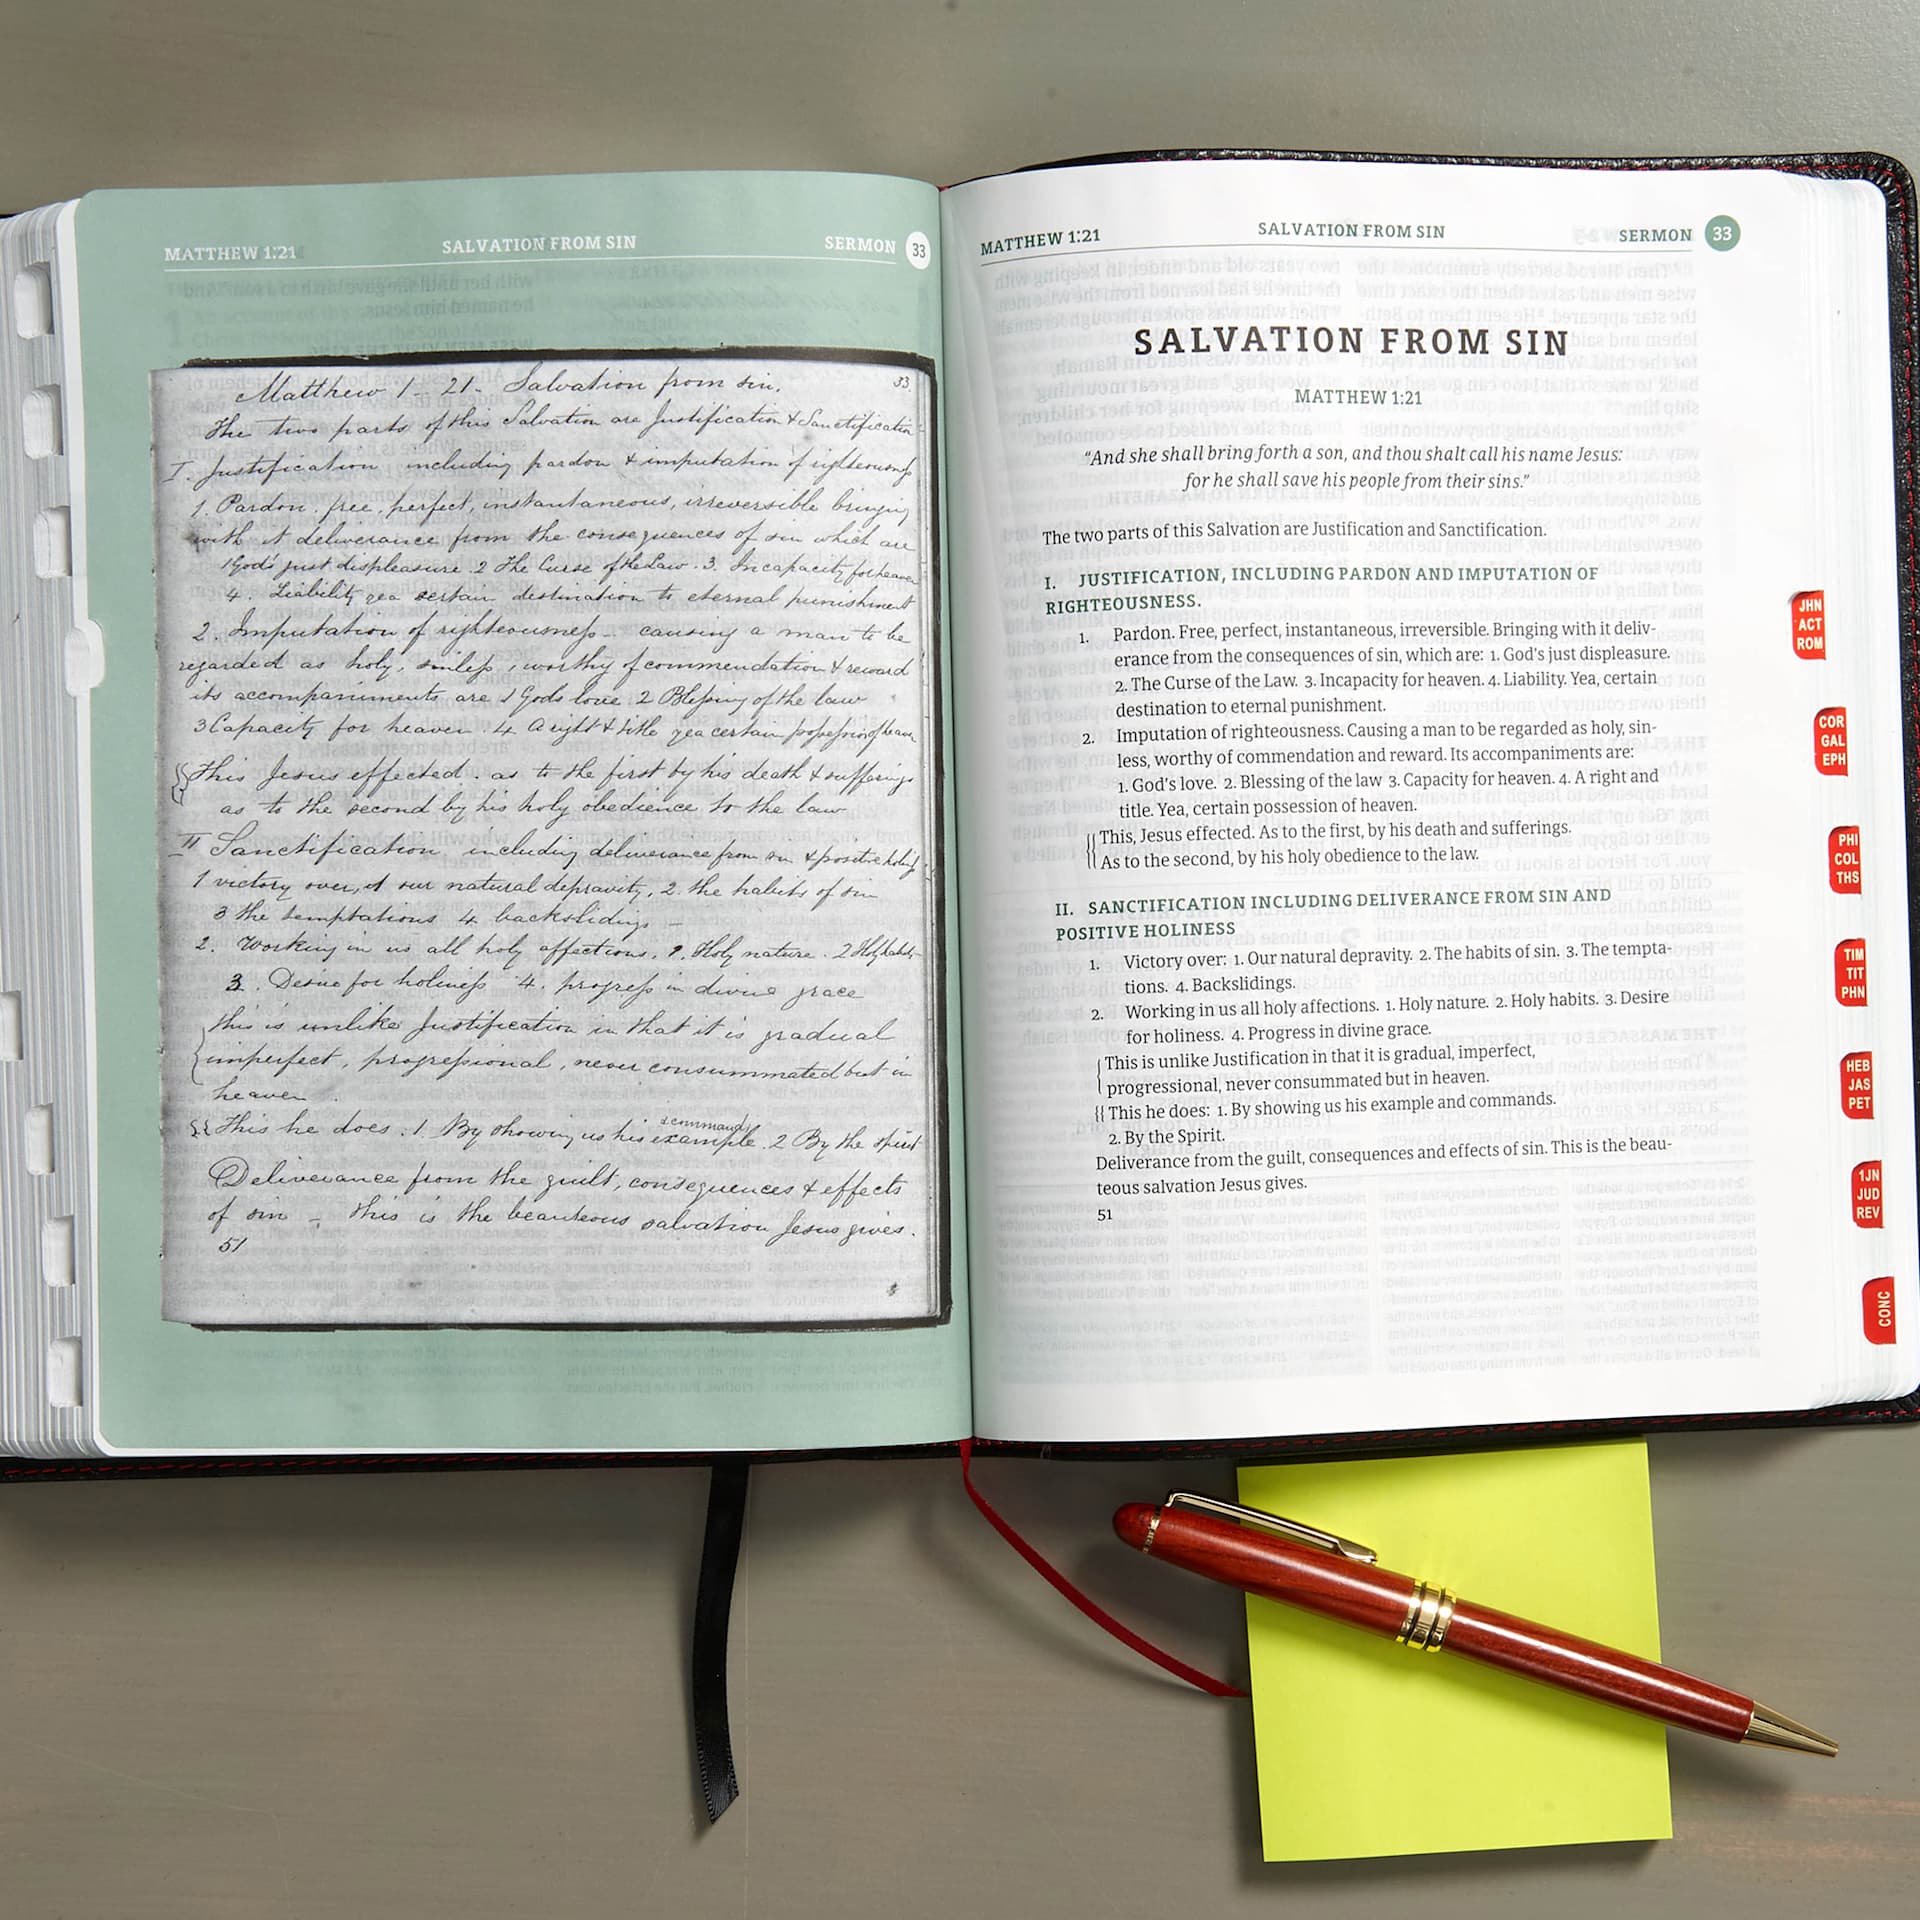 MATTHEW 1:21 SALVATION FROM SIN SERMON 33
Matthew 1-21- Salvation from sin. 33.
The two parts of this Salvation are Justification & Sanctification
I. Justification including pardon & imputation of righteousness
1. Pardon. free, perfect, instantaneous, irreversible bringing
with it deliverance from the consequences of sin which are
1 God's just displeasure. 2 The Curse of the Law. 3. Incapacity for heaven
4. Liability yea certain destination to eternal punishment
2. Imputation of righteousness - causing a man to be
regarded as holy, sinless, worthy of commendation & reward
its accompaniments are 1 Gods love 2 Blessing of the law
3 Capacity for heaven. 4. A right & title yea certain possession of heaven
{{ This Jesus effected. as to the first by his death & sufferings
as to the second by his holy obedience to the law
II Sanctification including deliverance from sin & positive holiness
1 victory over, 1 our natural depravity, 2. the habits of sin
3 the temptations 4. backslidings -
2. Working in us all holy affections. 1. Holy nature. 2 Holy habits
3. Desire for holiness 4. progress in divine grace
{ this is unlike Justification in that it is gradual
imperfect, progressional, never consummated but in
heaven.
{{ This he does. 1. By showing us his example & commands. 2 By the spirit
Deliverance from the guilt, consequences & effects
of sin - this is the beauteous salvation Jesus gives.
51
MATTHEW 1:21 SALVATION FROM SIN SERMON 33
SALVATION FROM SIN
MATTHEW 1:21
“And she shall bring forth a son, and thou shalt call his name Jesus:
for he shall save his people from their sins.”
The two parts of this Salvation are Justification and Sanctification.
I. JUSTIFICATION, INCLUDING PARDON AND IMPUTATION OF
RIGHTEOUSNESS.
1. Pardon. Free, perfect, instantaneous, irreversible. Bringing with it deliv-
erance from the consequences of sin, which are: 1. God's just displeasure.
2. The Curse of the Law. 3. Incapacity for heaven. 4. Liability. Yea, certain
destination to eternal punishment.
2. Imputation of righteousness. Causing a man to be regarded as holy, sin-
less, worthy of commendation and reward. Its accompaniments are:
1. God's love. 2. Blessing of the law 3. Capacity for heaven. 4. A right and
title. Yea, certain possession of heaven.
{{ This, Jesus effected. As to the first, by his death and sufferings.
As to the second, by his holy obedience to the law.
II. SANCTIFICATION INCLUDING DELIVERANCE FROM SIN AND
POSITIVE HOLINESS
1. Victory over: 1. Our natural depravity. 2. The habits of sin. 3. The tempta-
tions. 4. Backslidings.
2. Working in us all holy affections. 1. Holy nature. 2. Holy habits. 3. Desire
for holiness. 4. Progress in divine grace.
{ This is unlike Justification in that it is gradual, imperfect,
progressional, never consummated but in heaven.
{{ This he does: 1. By showing us his example and commands.
2. By the Spirit.
Deliverance from the guilt, consequences and effects of sin. This is the beau-
teous salvation Jesus gives.
51
JHN
ACT
ROM
COR
GAL
EPH
PHI
COL
THS
TIM
TIT
PHN
HEB
JAS
PET
1JN
JUD
REV
CONC